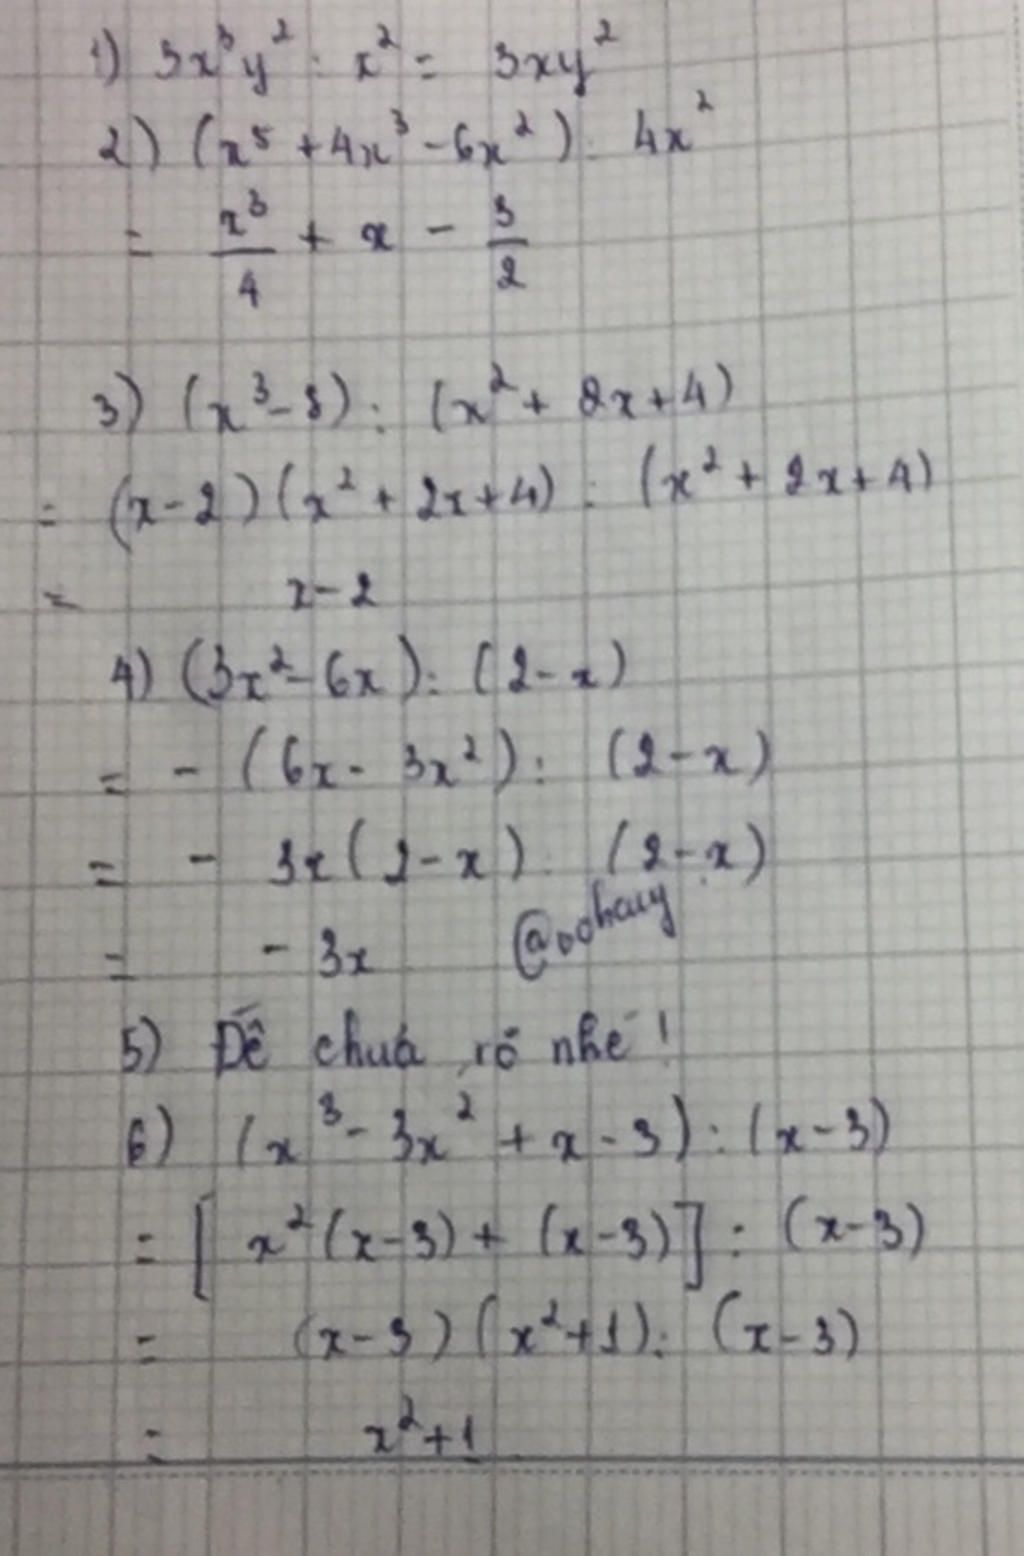 1) 3x³y² : x² = 3xy²
2) (x⁵ + 4x³ - 6x²) : 4x²
= x³/4 + x - 3/2
3) (x³ - 8) : (x² + 2x + 4)
= (x - 2)(x² + 2x + 4) : (x² + 2x + 4)
= x - 2
4) (3x² - 6x) : (2 - x)
= - (6x - 3x²) : (2 - x)
= - 3x(2 - x) : (2 - x)
= - 3x
5) Đề chưa rõ nhé !
6) (x³ - 3x² + x - 3) : (x - 3)
= [x²(x - 3) + (x - 3)] : (x - 3)
= (x - 3)(x² + 1) : (x - 3)
= x² + 1